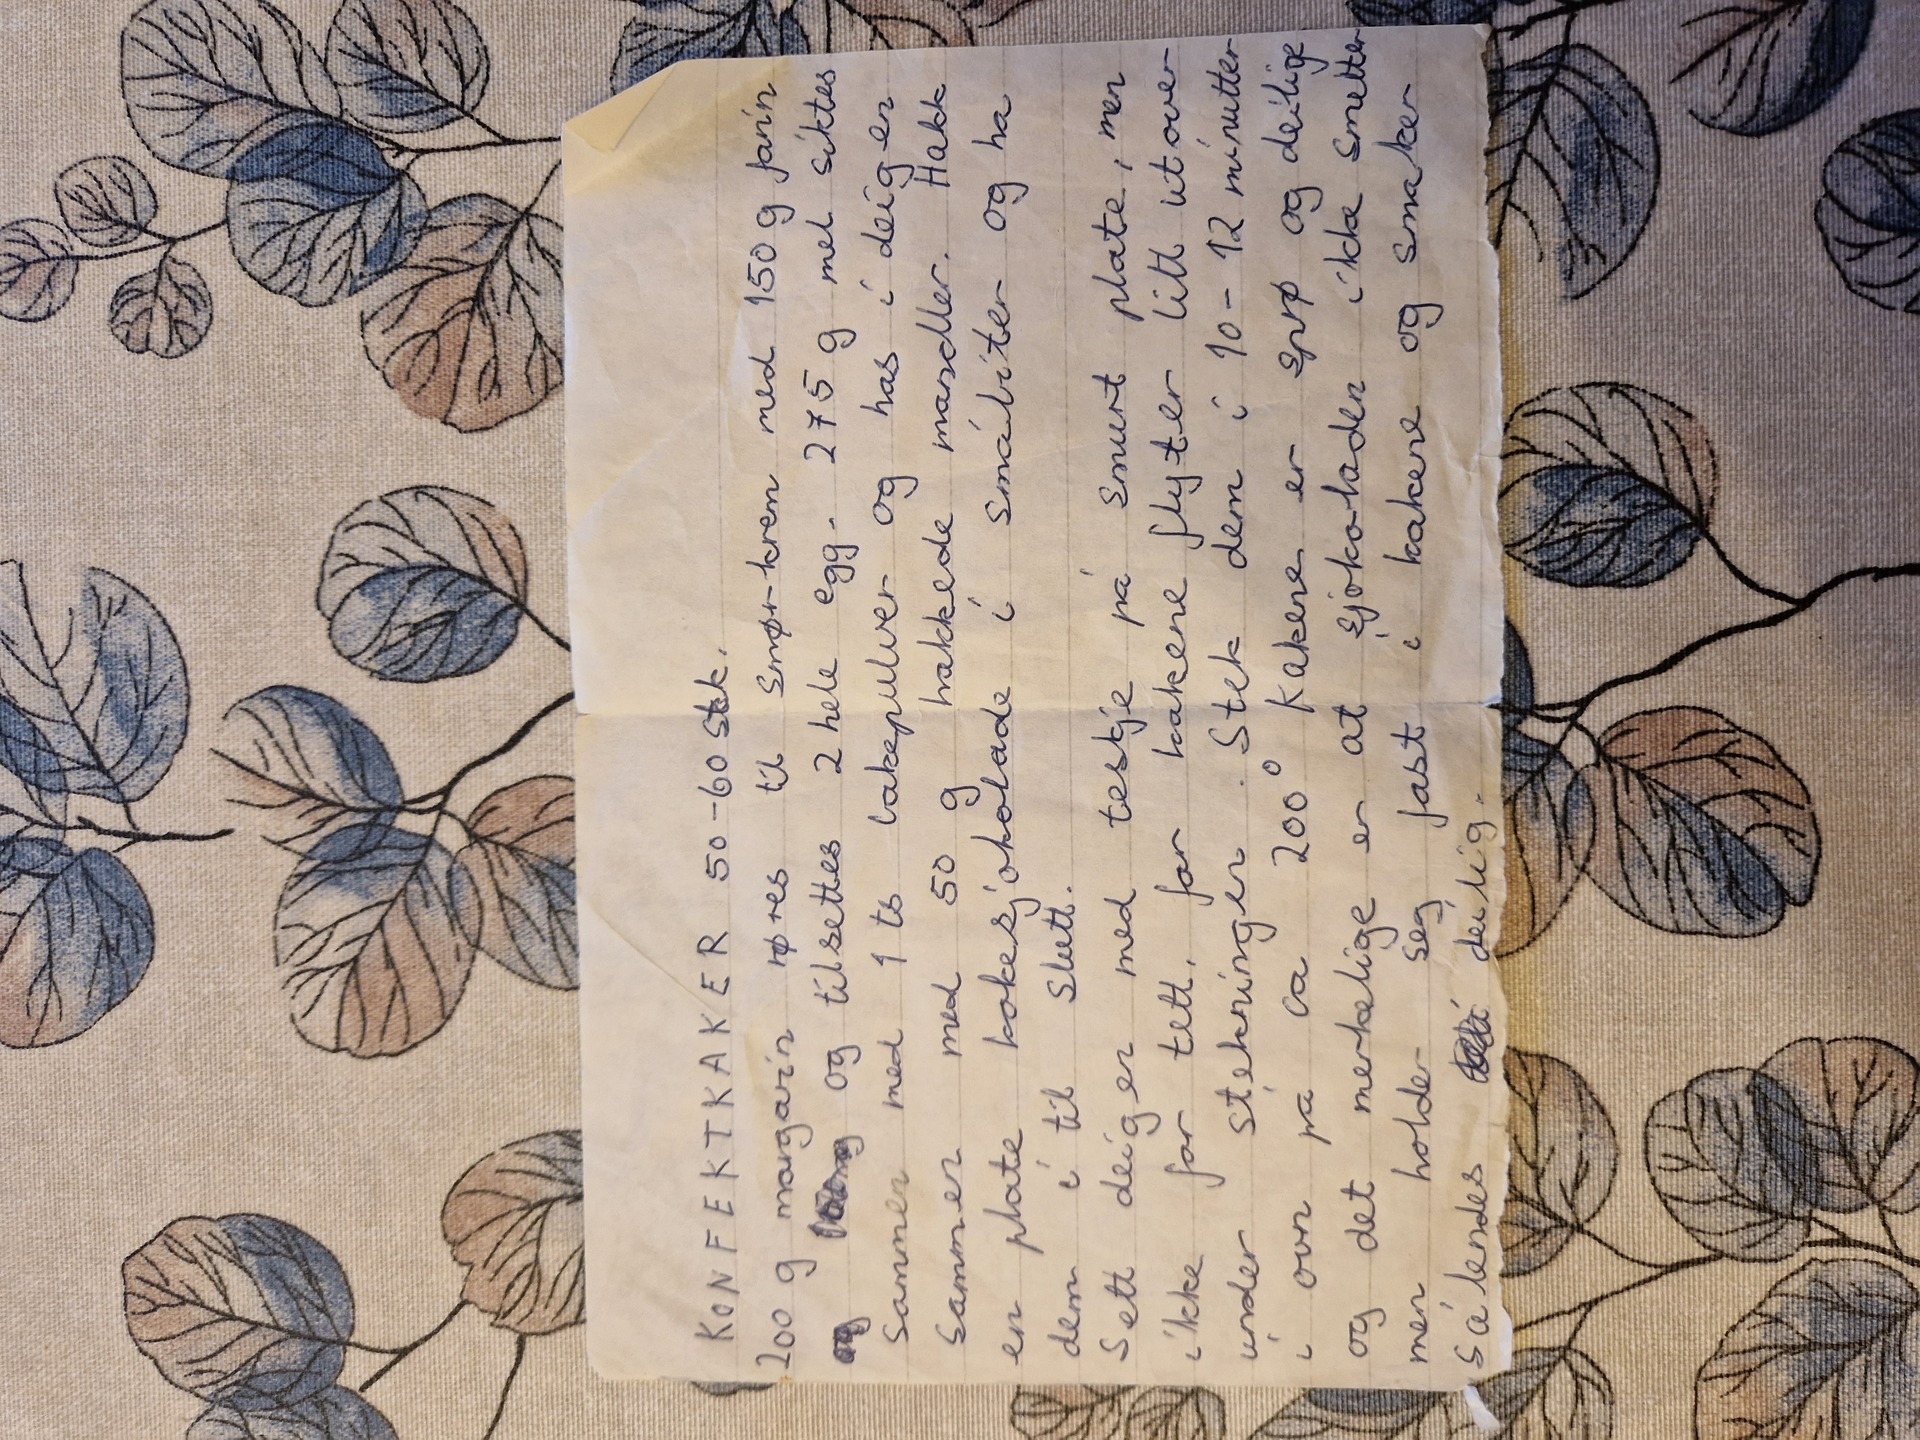 KONFEKTKAKER 50-60 stk.
200 g margarin røres til smørkrem med 150 g farin
og og tilsettes 2 hele egg. 275 g mel siktes
sammen med 1 ts bakepulver og has i deigen
sammen med 50 g hakkede mandler. Hakk
en plate kokesjokolade i småbiter og ha
dem i til slutt.
Sett deigen med teskje på smurt plate, men
ikke for tett, for kakene flyter litt utover
under stekningen. Stek dem i 10-12 minutter
i ovn på ca 200° Kakene er sprø og deilige
og det merkelige er at sjokoladen ikke smelter
men holder seg fast i kakene og smaker
således deilig.